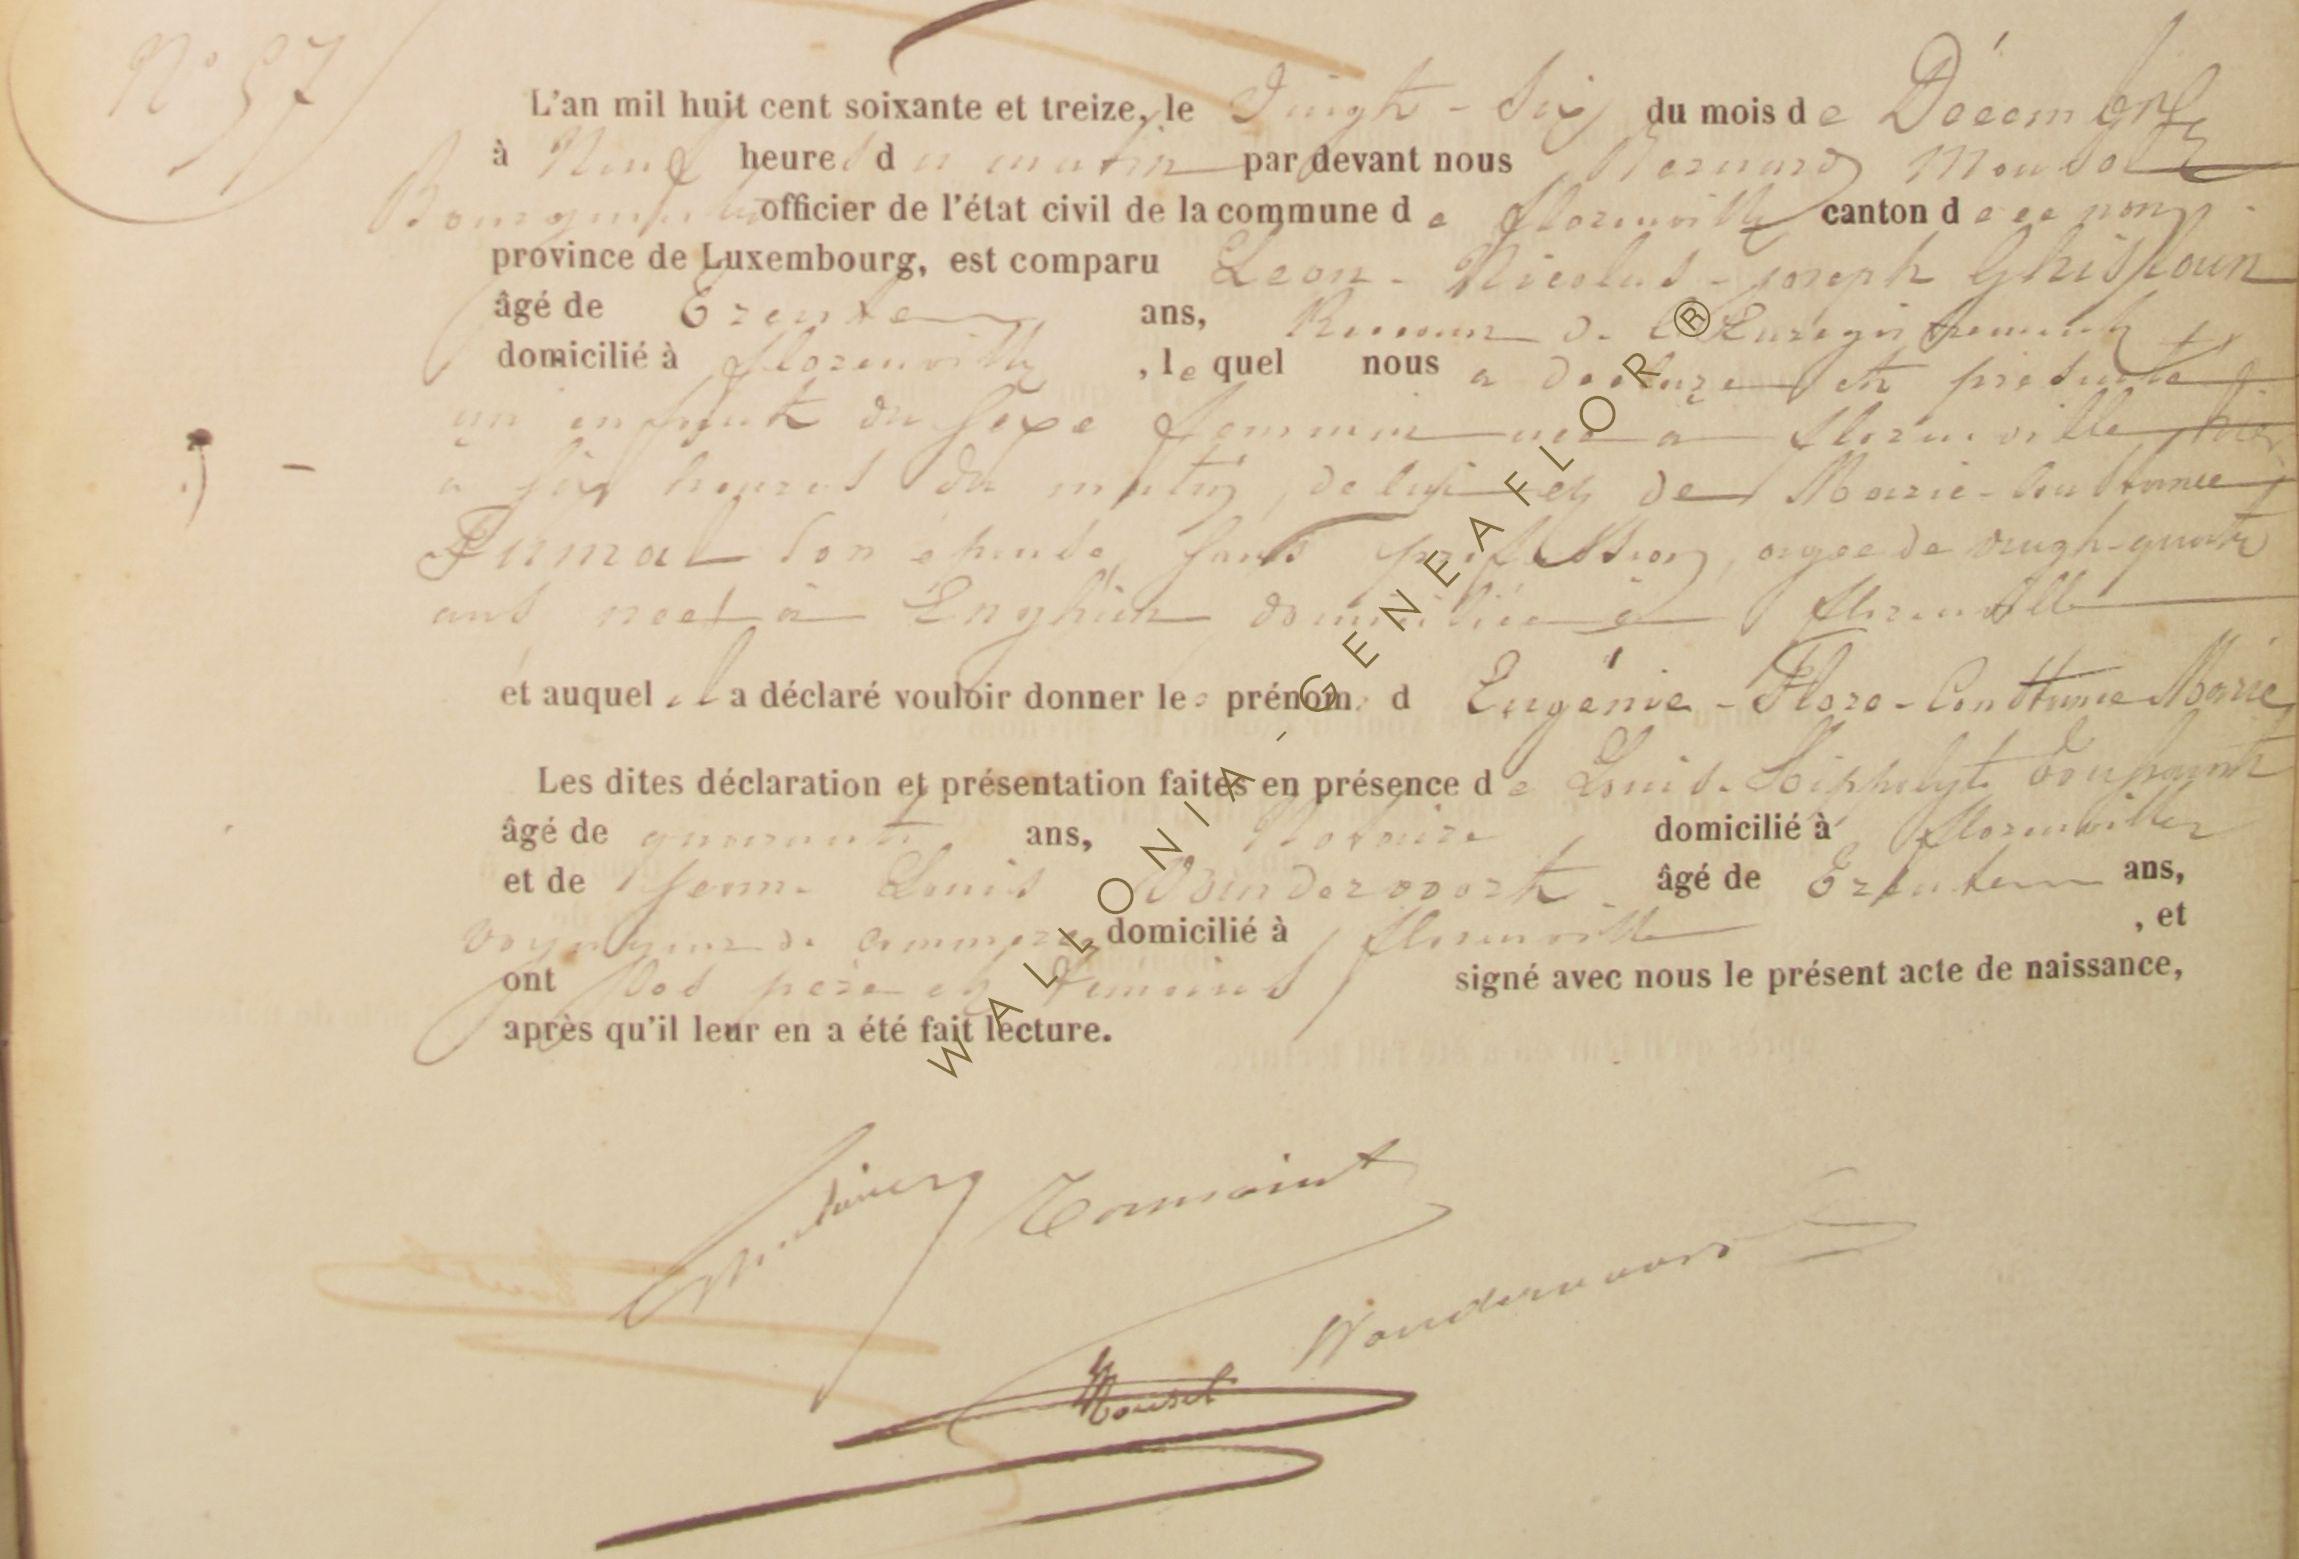 N° 57
L'an mil huit cent soixante et treize, le Vingt-Six du mois de Décembre
à Neuf heures du matin par devant nous Bernard Mousot
Bourgmestre officier de l'état civil de la commune de florenville canton de ce nom
province de Luxembourg, est comparu Leon-Nicolas-Joseph Ghislain
âgé de Trente ans, Receveur de l'Enregistrement
domicilié à florenville, lequel nous a declaré et presenté
un enfant du sexe feminin née a florenville hier
a six heures du matin, de lui et de Marie-Constance
Fumal son épouse, sans profession, agee de vingt-quatre
ans neé à Enghien domiciliée à florenville
et auquel il a déclaré vouloir donner les prénoms d Eugénie-Flore-Constance Marie
Les dites déclaration et présentation faites en présence de Louis-Hippolyte Toussaint
âgé de quarante ans, Notaire domicilié à florenville
et de Jean Louis Vandervoort âgé de Trente ans,
voyageur de commerce domicilié à florenville, et
ont les père et temoins signé avec nous le présent acte de naissance,
après qu'il leur en a été fait lecture.
Toussaint
Mousot
WALLONIA - GENEAFLOR ®